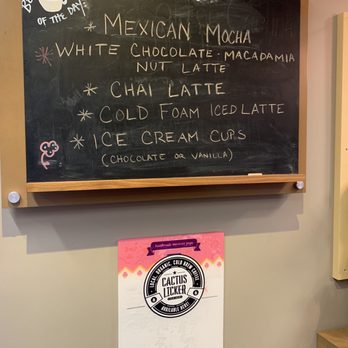 OF THE DAY
* MEXICAN MOCHA
* WHITE CHOCOLATE · MACADAMIA
NUT LATTE
* CHAI LATTE
* COLD FOAM ICED LATTE
* ICE CREAM CUPS
(CHOCOLATE OR VANILLA)
LOCAL, ORGANIC, COLD BREW COFFEE
CACTUS
LICKER
AVAILABLE HERE!